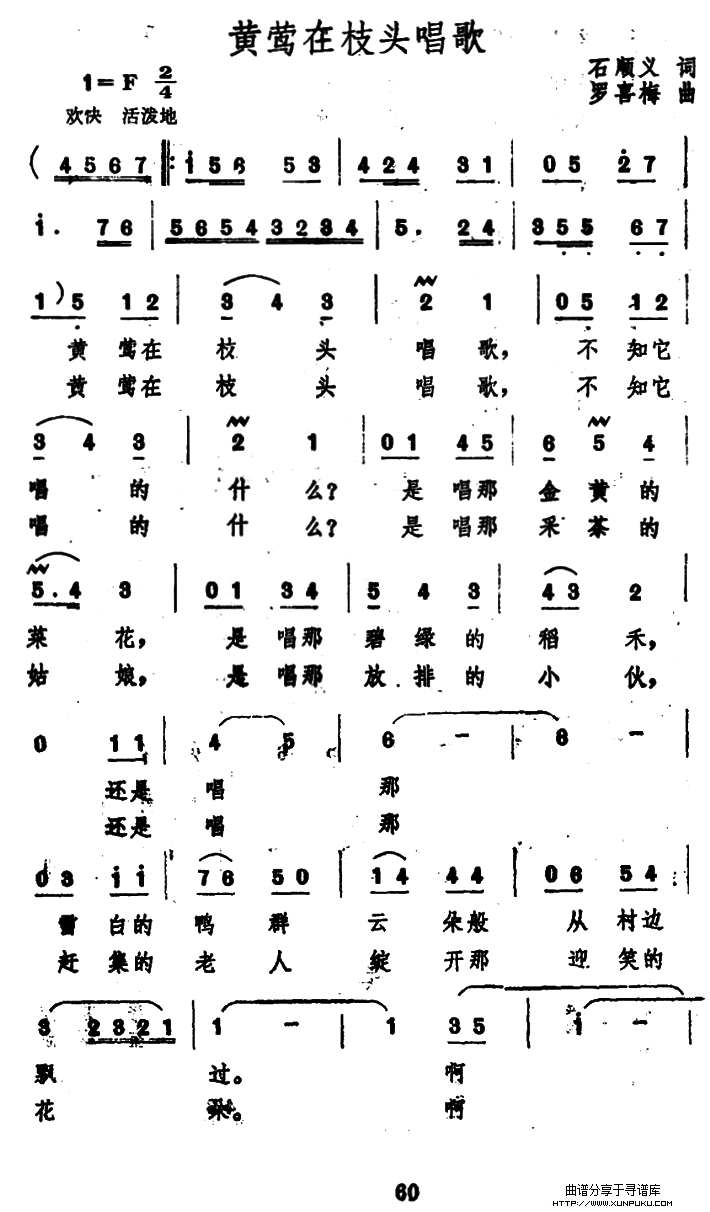 黄莺在枝头唱歌
1=F 2/4
石顺义 词
罗喜梅 曲
欢快 活泼地
( 4567 |: i56 53 | 424 31 | 05 27 |
i. 76 | 5654 3234 | 5. 24 | 355 67 |
1) 5 12 | 3 4 3 | 2 1 | 05 12 |
黄 莺在 枝 头 唱 歌, 不 知它
黄 莺在 枝 头 唱 歌, 不 知它
3 4 3 | 2 1 | 01 45 | 6 5 4 |
唱 的 什 么? 是 唱那 金 黄 的
唱 的 什 么? 是 唱那 采 茶 的
5.4 3 | 01 34 | 5 4 3 | 43 2 |
菜 花, 是 唱那 碧 绿 的 稻 禾,
姑 娘, 是 唱那 放 排 的 小 伙,
0 11 | 4 5 | 6 - | 6 - |
还是 唱 那
还是 唱 那
03 ii | 76 50 | 14 44 | 06 54 |
雪 白的 鸭 群 云 朵般 从 村边
赶 集的 老 人 绽 开那 迎 笑的
3 2321 | 1 - | 1 35 | i - |
飘 过。 啊
花 朵。 啊
60
曲谱分享于寻谱库
HTTP://WWW.XUNPUKU.COM